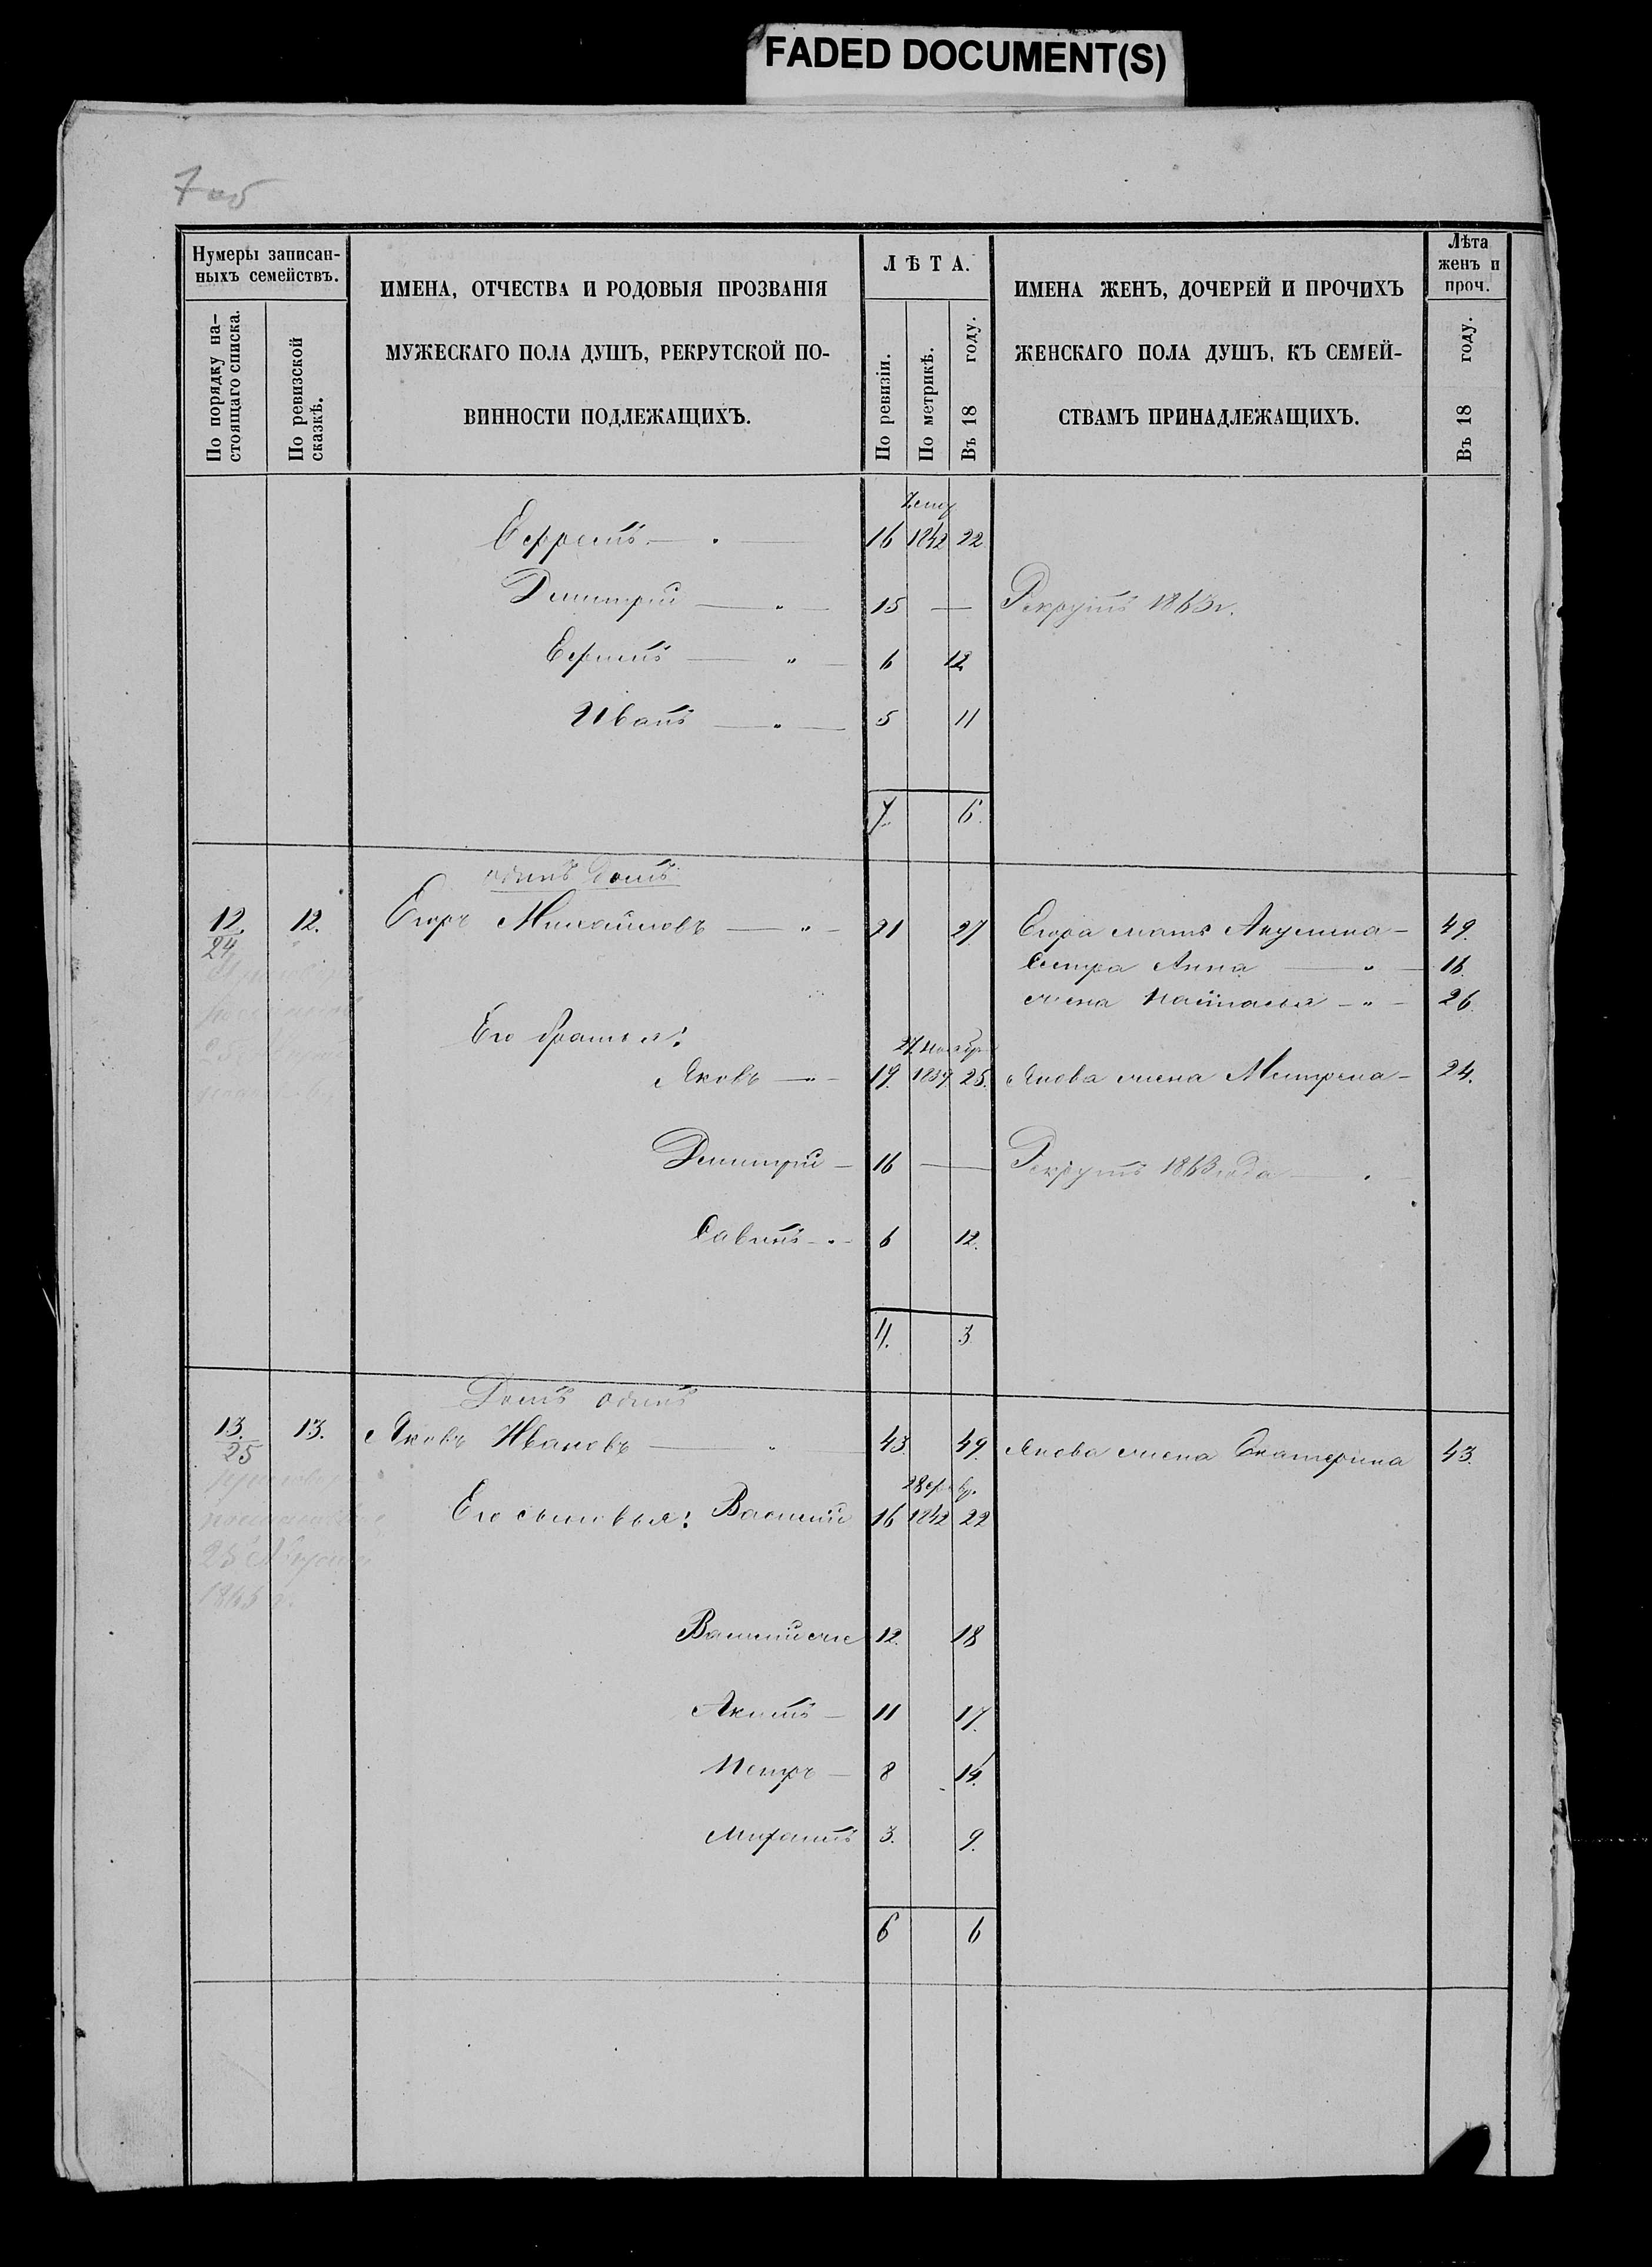 FADED DOCUMENT(S)
7 об
Нумеры записан-
ныхъ семействъ.
По порядку на-
стоящаго списка.
По ревизской
сказкѣ.
ИМЕНА, ОТЧЕСТВА И РОДОВЫЯ ПРОЗВАНІЯ
МУЖЕСКАГО ПОЛА ДУШЪ, РЕКРУТСКОЙ ПО-
ВИННОСТИ ПОДЛЕЖАЩИХЪ.
ЛѢТА.
По ревизіи.
По метрикѣ.
Въ 18 году.
ИМЕНА ЖЕНЪ, ДОЧЕРЕЙ И ПРОЧИХЪ
ЖЕНСКАГО ПОЛА ДУШЪ, КЪ СЕМЕЙ-
СТВАМЪ ПРИНАДЛЕЖАЩИХЪ.
Лѣта
женъ и
проч.
Въ 18 году.
Ефремъ — " — 16 1842 22
Дмитрій — " — 15 — Рекрутъ 1863 г.
Ефимъ — " — 6 12
Иванъ — " — 5 11
7. 6.
одинъ домъ
12. 12. Егоръ Михайловъ — " — 21 27 Егора мать Акулина — 49.
24
Сестра Анна — " — 16
жена Наталья — " — 26
Его братья:
Яковъ — " — 19. 1839 25. Якова жена Матрена — 24.
Дмитрій — 16 — Рекрутъ 1863 года — " —
Савинъ — " — 6 12.
4. 3
Домъ одинъ
13. 13. Яковъ Ивановъ — " 43. 49. Якова жена Екатерина 43.
25
Его сыновья: Василій 16 1842 22
25 Августа
1865 г.
Василій же 12. 18
Акимъ — 11 17.
Петръ — 8 14.
3. 9.
6 6